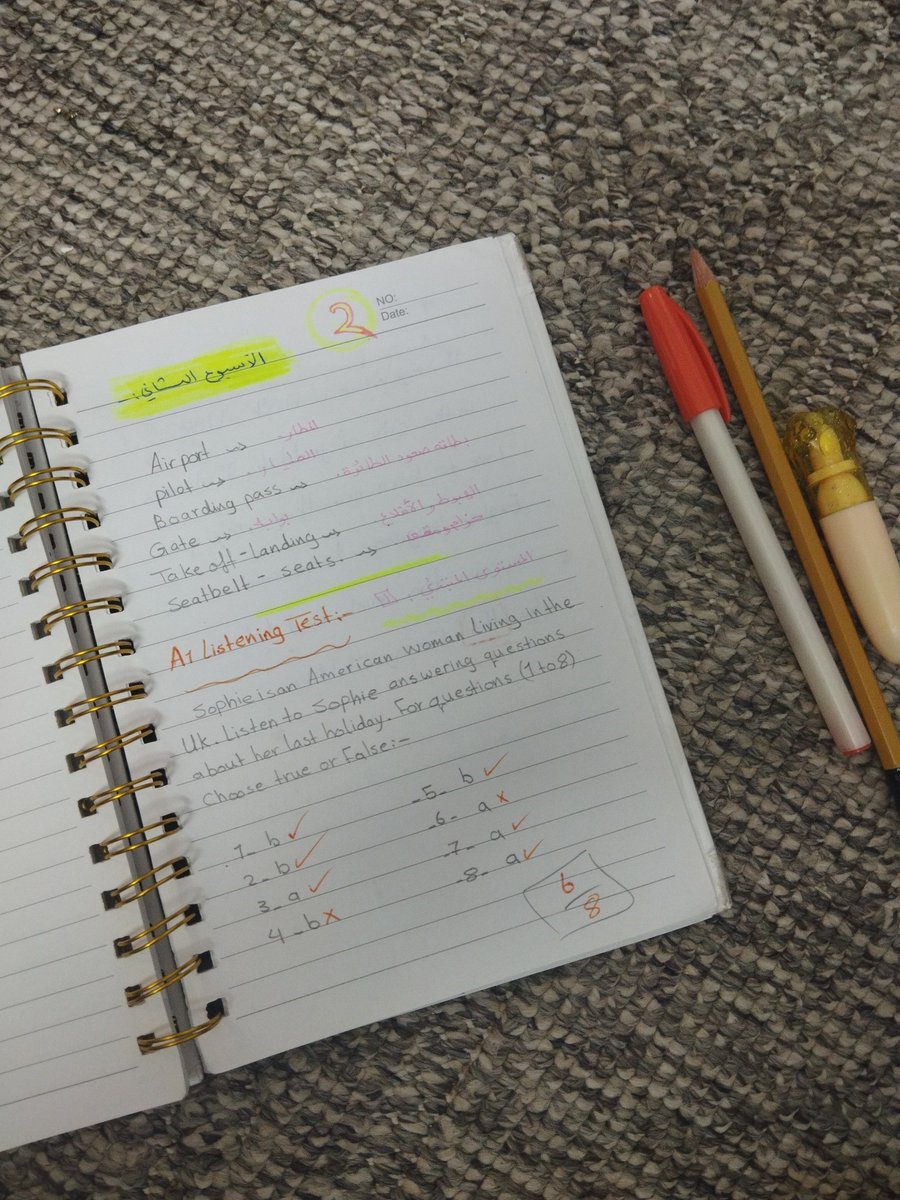 2
NO:
Date:
الأسبوع الثاني:
Airport → المطار
pilot → الطيار
Boarding pass → بطاقة صعود الطائرة
Gate → بوابة
Take off - landing → الهبوط و الأقلاع
Seatbelt - seats. →
A1 Listening Test:- المستوى المبتدئ
Sophie is an American woman living in the
UK. Listen to Sophie answering questions
about her last holiday. For questions (1 to 8)
Choose true or False:-
1- b ✓
2- b ✓
3- a ✓
4- b x
-5- b ✓
-6- a x
-7- a ✓
-8- a ✓
6/8